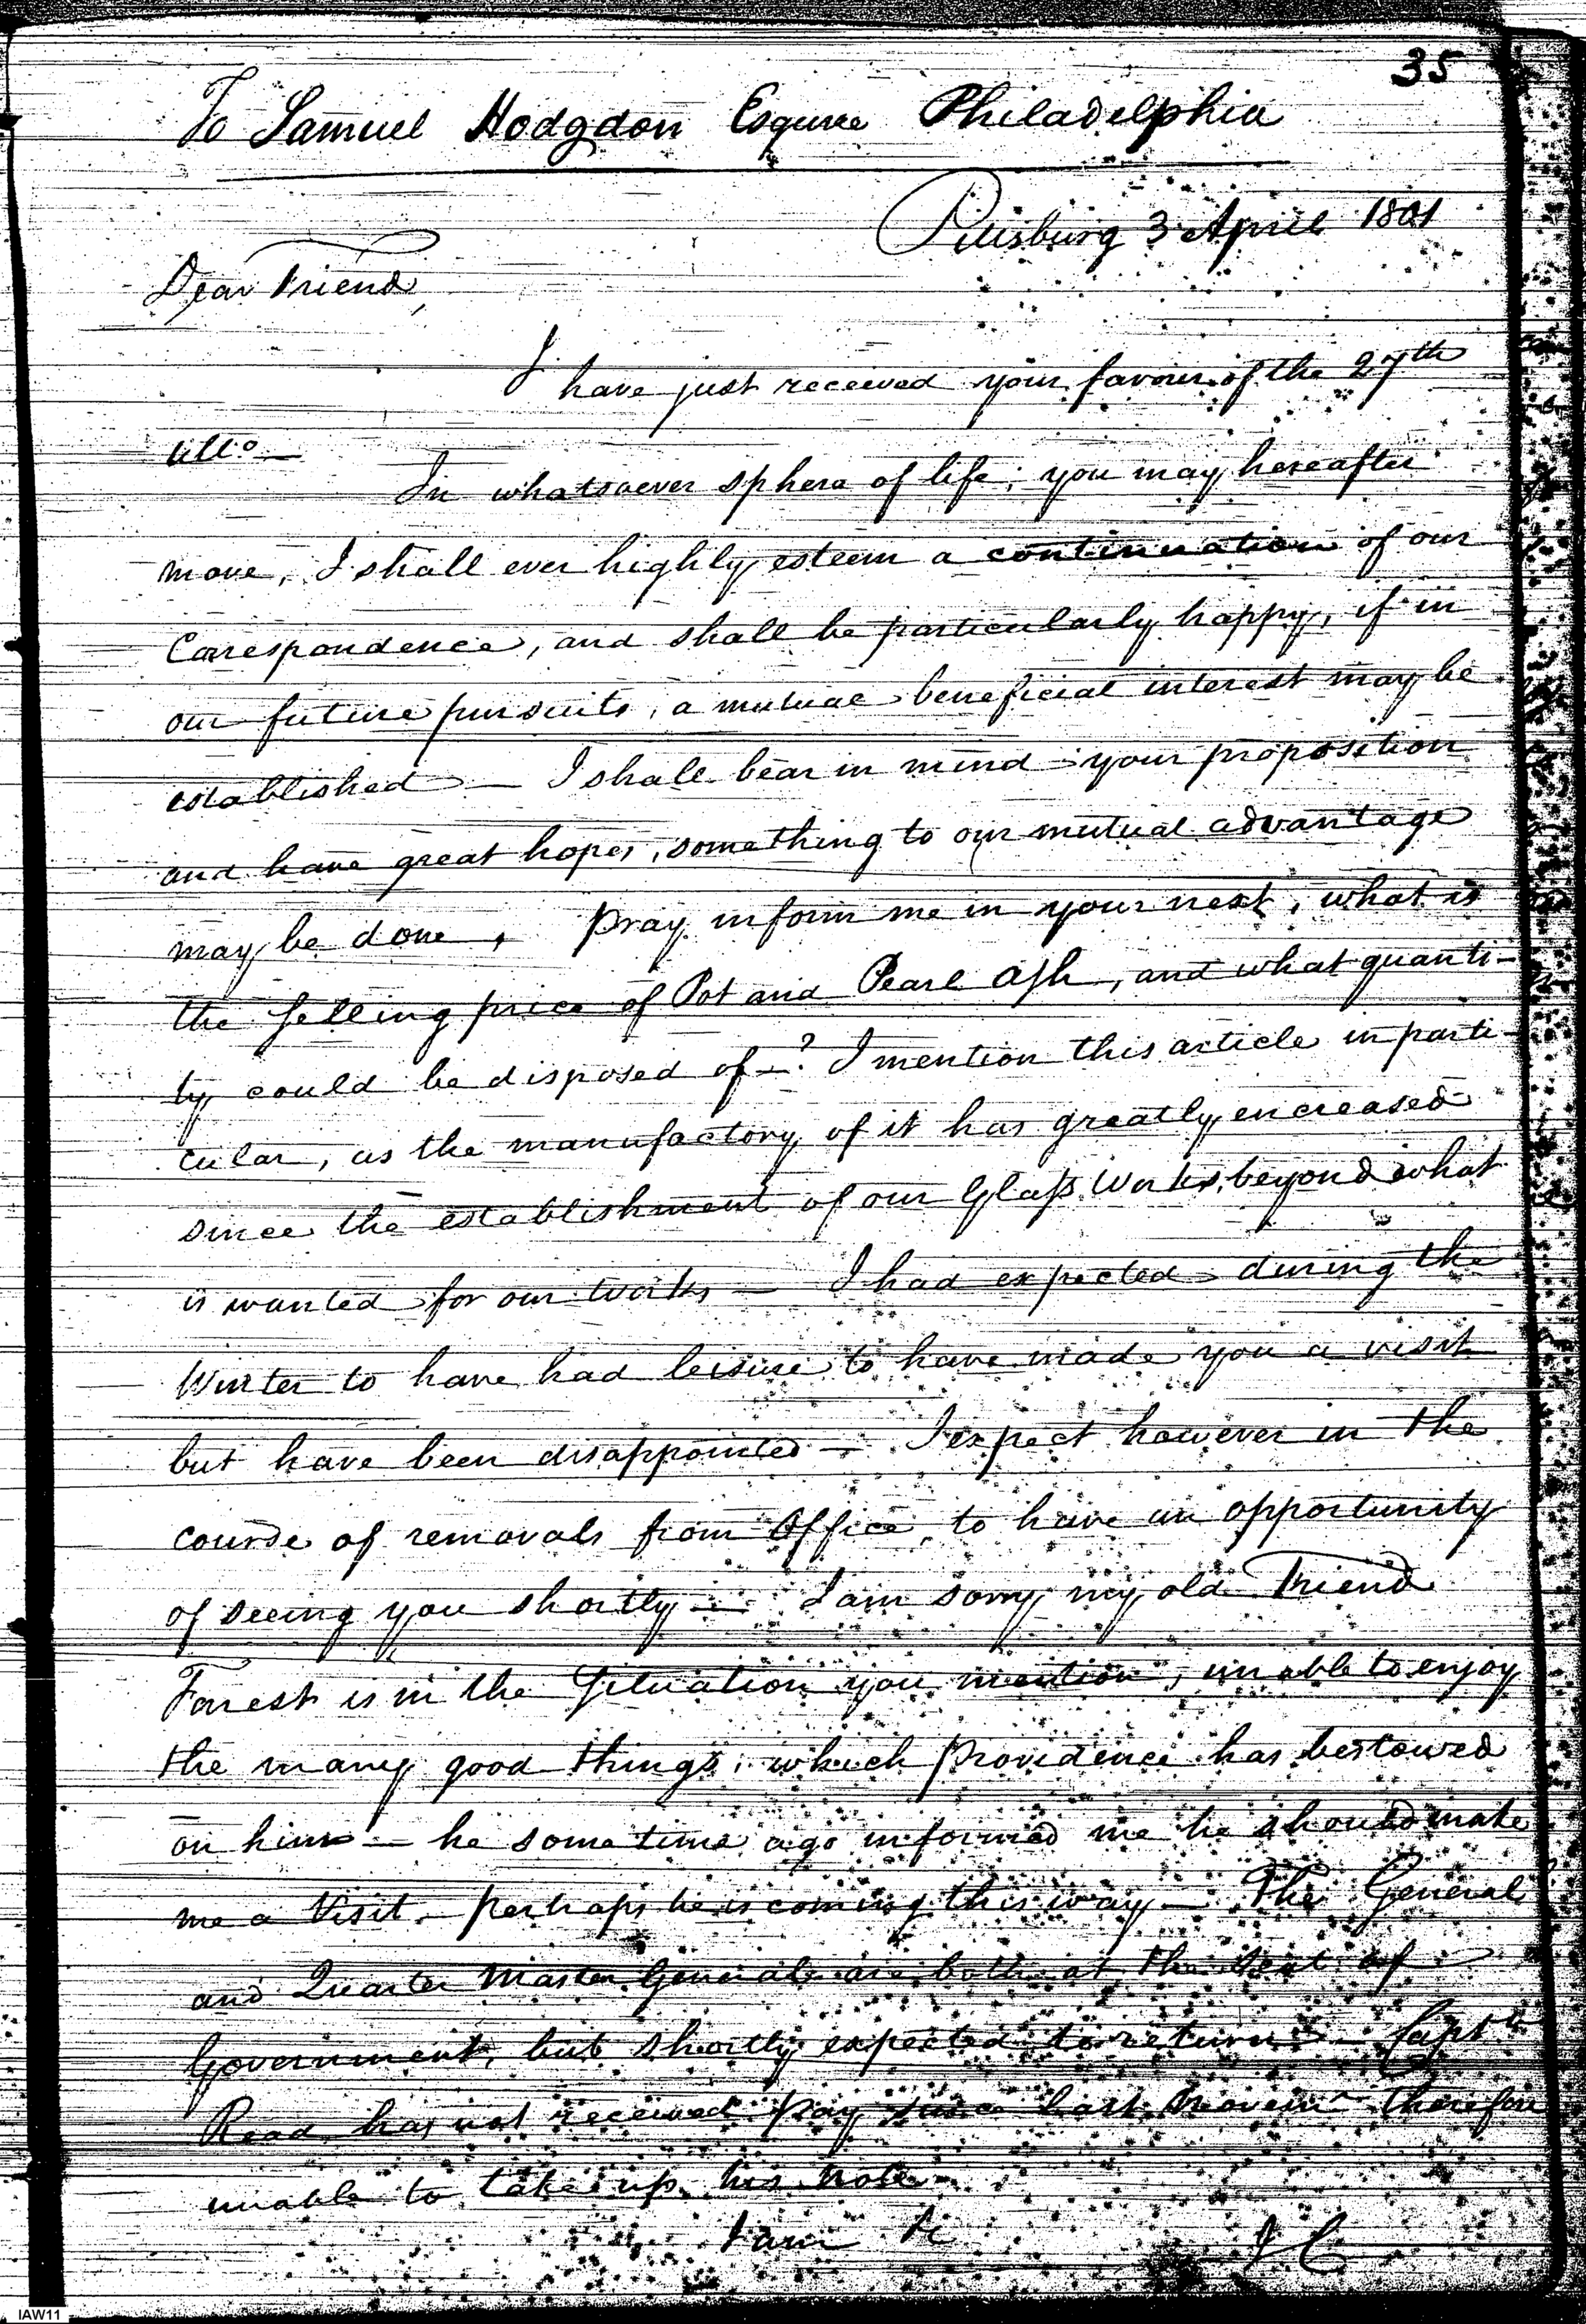 35
To Samuel Hodgdon Esquire Philadelphia
Pittsburg 3 April 1801
Dear Friend,
I have just received your favour of the 27th
ullo —
In whatsoever sphere of life, you may hereafter
move, I shall ever highly esteem a continuation of our
Correspondence, and shall be particularly happy, if in
our future pursuits, a mutual beneficial interest may be
established — I shall bear in mind your proposition
and have great hopes, something to our mutual advantage
may be done, pray inform me in your next, what is
the selling price of Pot and Pearl Ash, and what quanti-
ty could be disposed of —? I mention this article in parti-
cular, as the manufactory of it has greatly encreased
since the establishment of our Glass Works, beyond what
is wanted for our Works — I had expected during the
Winter to have had leisure to have made you a visit
but have been disappointed — I expect however in the
course of removals from Office, to have an opportunity
of seeing you shortly — I am sorry my old Friend
Forest is in the Situation you mention, unable to enjoy
the many good things, which Providence has bestowed
on him — he some time ago informed me he should make
me a Visit. perhaps he is coming this way — The General
and Quarter Master General are both at the Seat of
Government, but shortly expected to return — Captn
Read has not received pay since last Novemr therefore
unable to take up his Note
I am &c
I C
IAW11